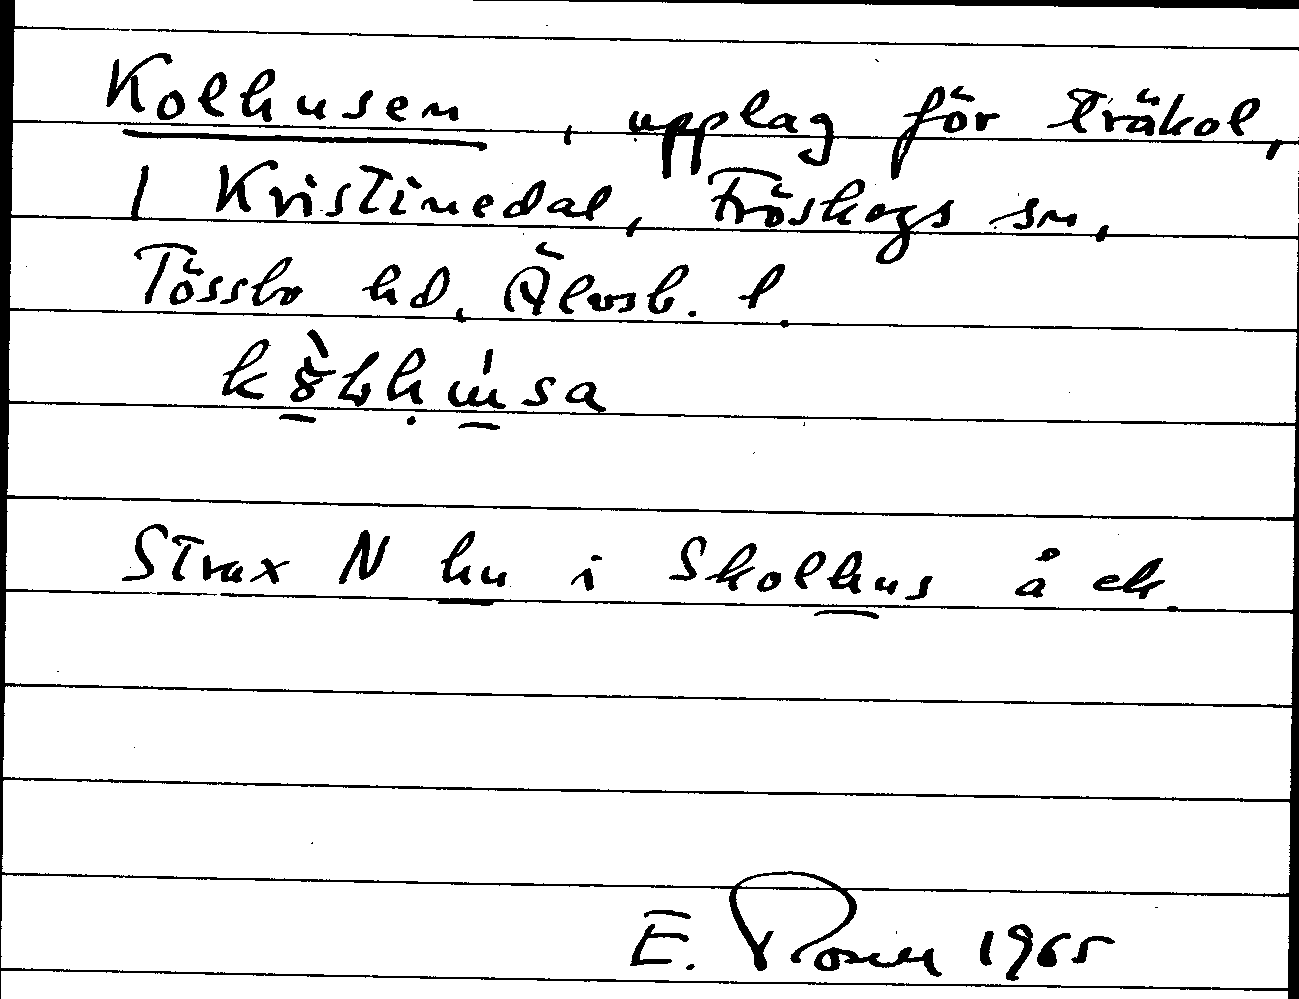 Kolhusen, upplag för träkol,
1 Kristinedal, Fröskogs sn,
Tössbo hd. Älvsb. l.
Strax N hu i Skolhus å ek.
E. Rosell 1965